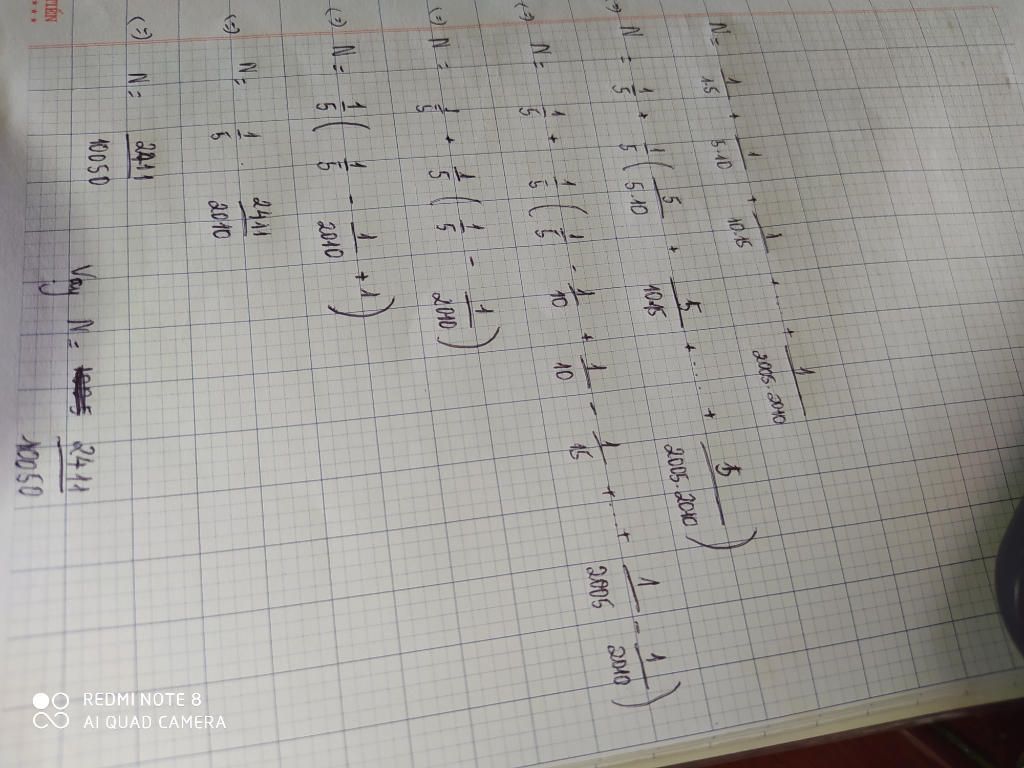 N = 1/1.5 + 1/5.10 + 1/10.15 + ... + 1/2005.2010
=> N = 1/5 + 1/5 ( 5/5.10 + 5/10.15 + ..... + 5/2005.2010 )
=> N = 1/5 + 1/5 ( 1/5 - 1/10 + 1/10 - 1/15 + .... + 1/2005 - 1/2010 )
(=) N = 1/5 + 1/5 ( 1/5 - 1/2010 )
(=) N = 1/5 ( 1/5 - 1/2010 + 1 )
(=) N = 1/5 . 2411/2010
(=) N = 2411/10050
Vay N = 2411/10050
REDMI NOTE 8
AI QUAD CAMERA